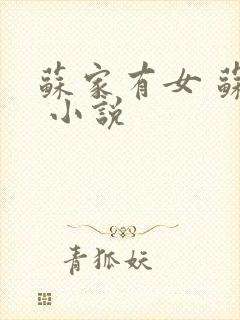 蘇家有女 蘇
小說
青狐妖